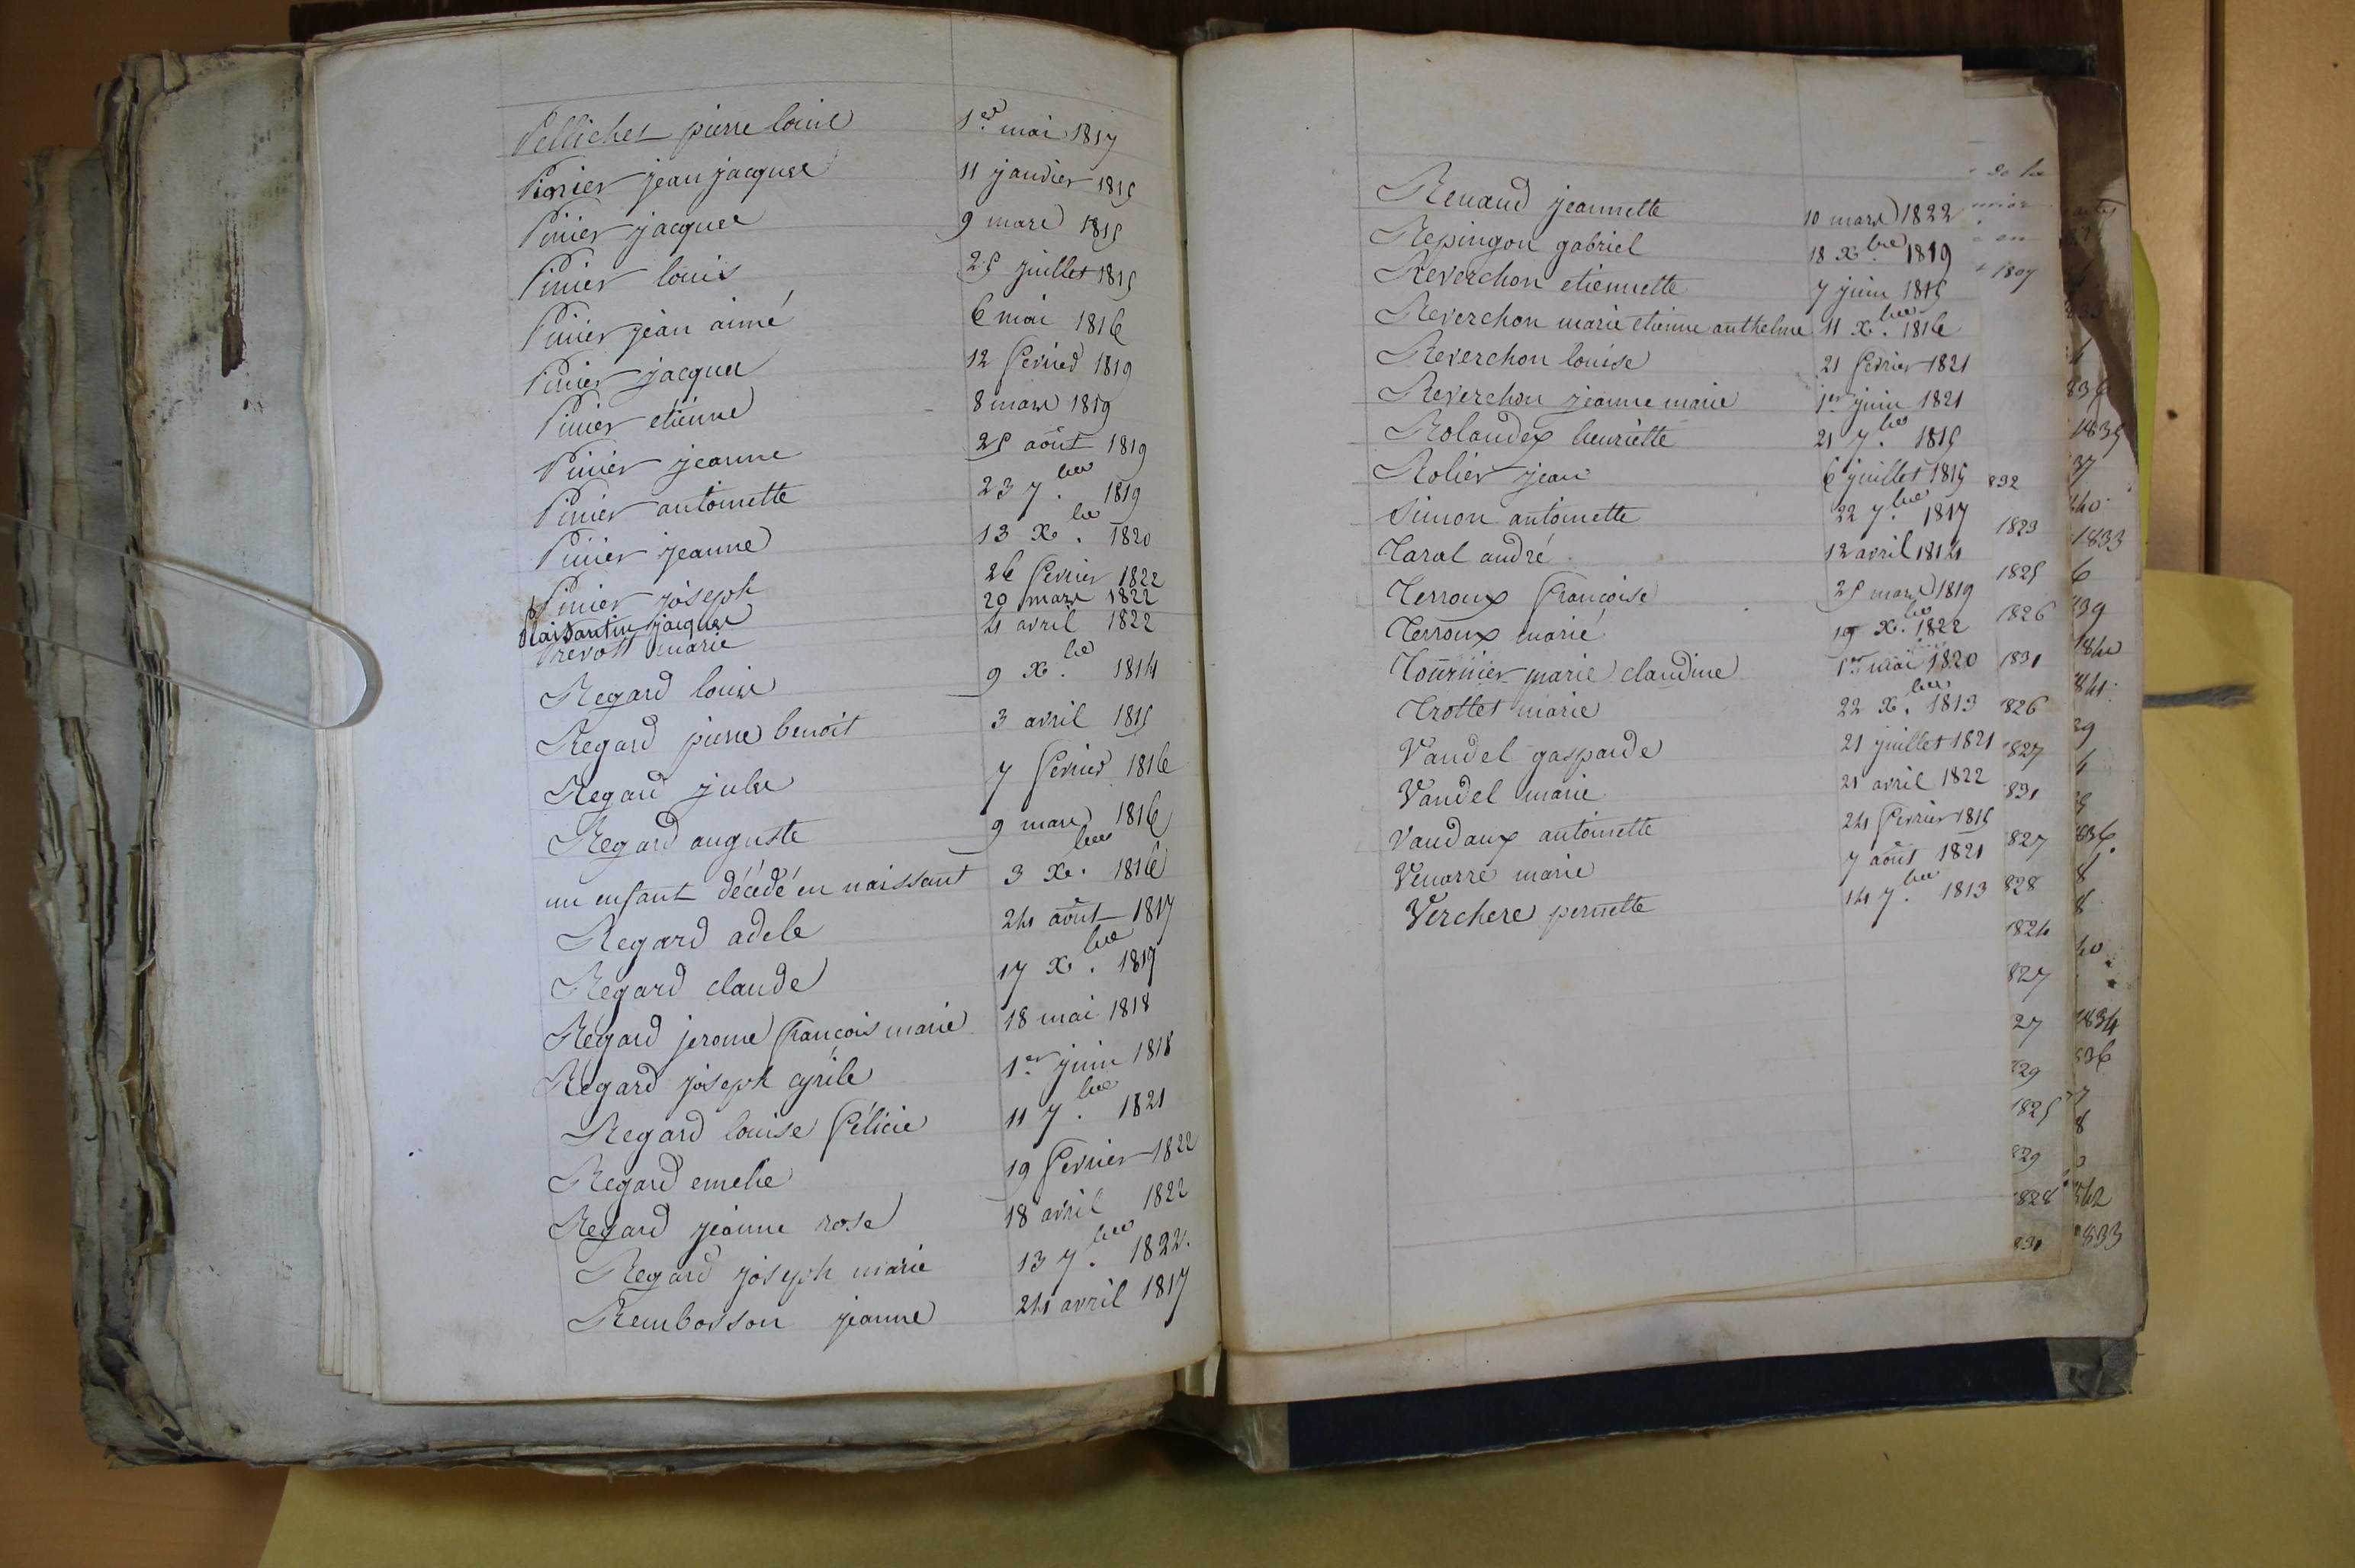 Pelliches pierre louis 1er mai 1817
Pinier jean jacques 11 janvier 1815
Pinier jacques 9 mars 1815
Pinier louis 25 juillet 1815
Pinier jean aimé 6 mai 1816
Pinier jacques 12 fevrier 1819
Pinier etienne 8 mars 1819
Pinier jeanne 25 août 1819
Pinier antoinette 23 7.bre 1819
Pinier jeanne 13 X.bre 1820
Pinier joseph 26 fevrier 1822
Plaisantin jacques 20 mars 1822
Prevost marie 4 avril 1822
Regard louise 9 X.bre 1814
Regard pierre benoit 3 avril 1815
Regard jules 7 fevrier 1816
Regard auguste 9 mars 1816
un enfant décédé en naissant 3 X.bre 1816
Regard adele 24 août 1817
Regard claude 17 X.bre 1817
Regard jerome françois marie 18 mai 1818
Regard joseph cyrile 1er juin 1818
Regard louise félicie 11 7.bre 1821
Regard emelie 19 fevrier 1822
Regard jeanne rose 18 avril 1822
Regard joseph marie 13 7.bre 1822.
Rembosson jeanne 24 avril 1817
Renaud jeannette 10 mars 1822
Repingon gabriel 18 X.bre 1819
Reverchon etiennette 7 juin 1815
Reverchon marie etienne anthelme 11 X.bre 1816
Reverchon louise 21 fevrier 1821
Reverchon jeanne marie 1er juin 1821
Rolandez henriette 21 7.bre 1815
Rolier jean 6 juillet 1815
Simon antoinette 22 7.bre 1817
Taral andré 12 avril 1814
Terroux françoise 25 mars 1819
Terroux marie 19 X.bre 1822
Tournier marie claudine 1er mai 1820
Trottet marie 22 X.bre 1813
Vandel gasparde 21 juillet 1821
Vandel marie 21 avril 1822
Vandaux antoinette 24 fevrier 1815
Venarre marie 7 août 1821
Verchere pernette 14 7.bre 1813
de la
en
1807
832
1823
1825
1826
1831
826
827
831
827
828
1824
827
27
829
1825
829
1828
831
836
1835
37
1833
6
39
1840
841
39
836
8
8
40
1834
836
8
842
1833